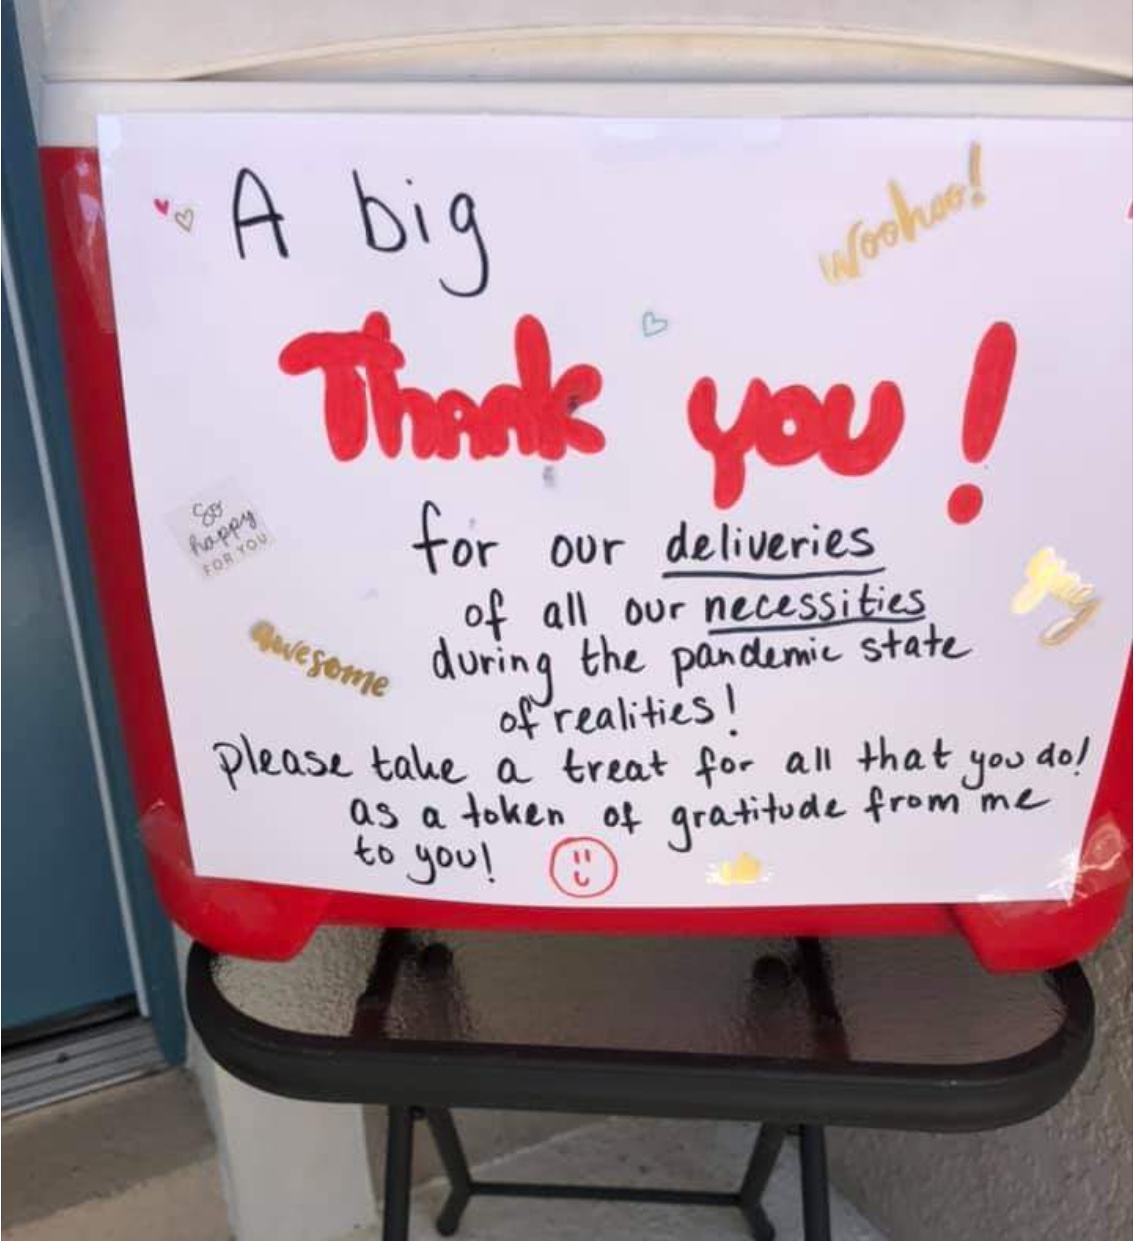 A big
woohoo!
Thank you!
So
happy
FOR YOU
for our deliveries
of all our necessities
yay
awesome
during the pandemic state
of realities!
please take a treat for all that you do!
as a token of gratitude from me
to you!